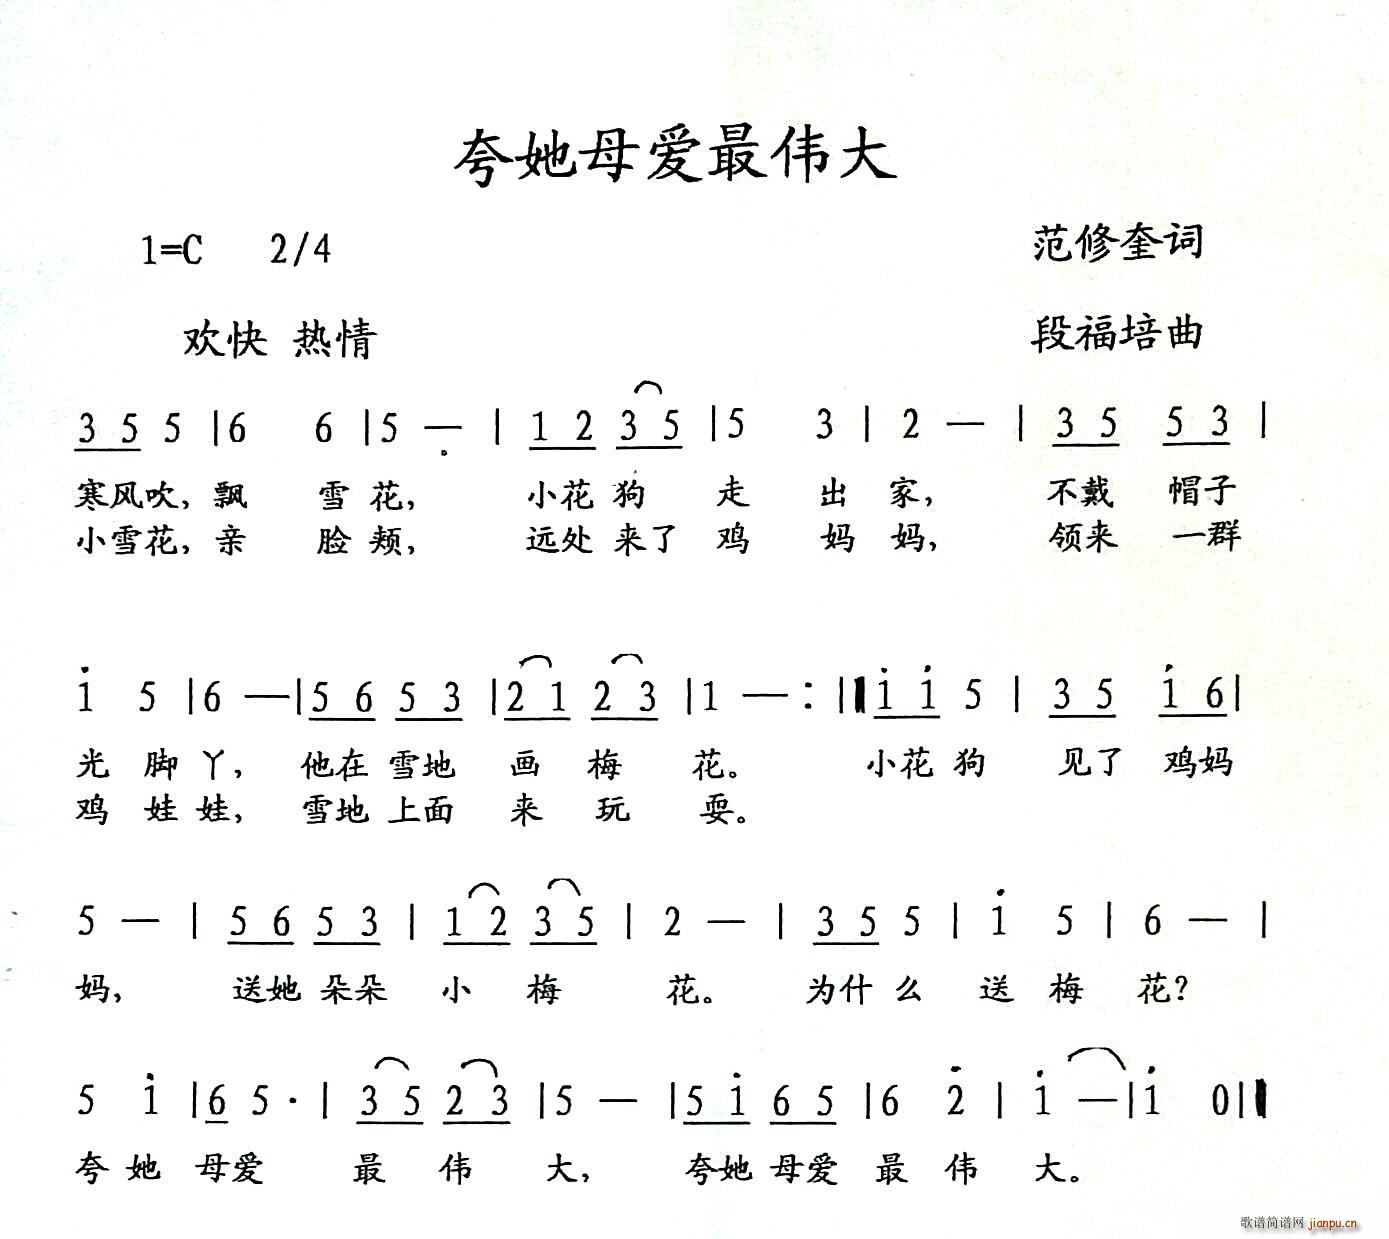 夸她母爱最伟大
1=C 2/4 范修奎词
欢快 热情 段福培曲
3 5 5 |6 6 |5 — | 1 2 3 5 |5 3 | 2 — | 3 5 5 3 |
寒风吹, 飘 雪 花, 小花 狗 走 出 家, 不戴 帽子
小雪花, 亲 脸 颊, 远处 来了 鸡 妈 妈, 领来 一群
i 5 |6 —|5 6 5 3 |2 1 2 3 |1 —:‖i i 5 | 3 5 i 6|
光 脚 丫, 他在 雪地 画 梅 花。 小花 狗 见了 鸡妈
鸡 娃 娃, 雪地 上面 来 玩 耍。
5 — | 5 6 5 3 | 1 2 3 5 | 2 — | 3 5 5 | i 5 | 6 — |
妈, 送她 朵朵 小 梅 花。 为什 么 送 梅 花?
5 i |6 5· | 3 5 2 3 |5 — |5 i 6 5 |6 2̇ | i —|i 0‖
夸 她 母爱 最 伟 大, 夸她 母爱 最 伟 大。
歌谱简谱网 jianpu.cn